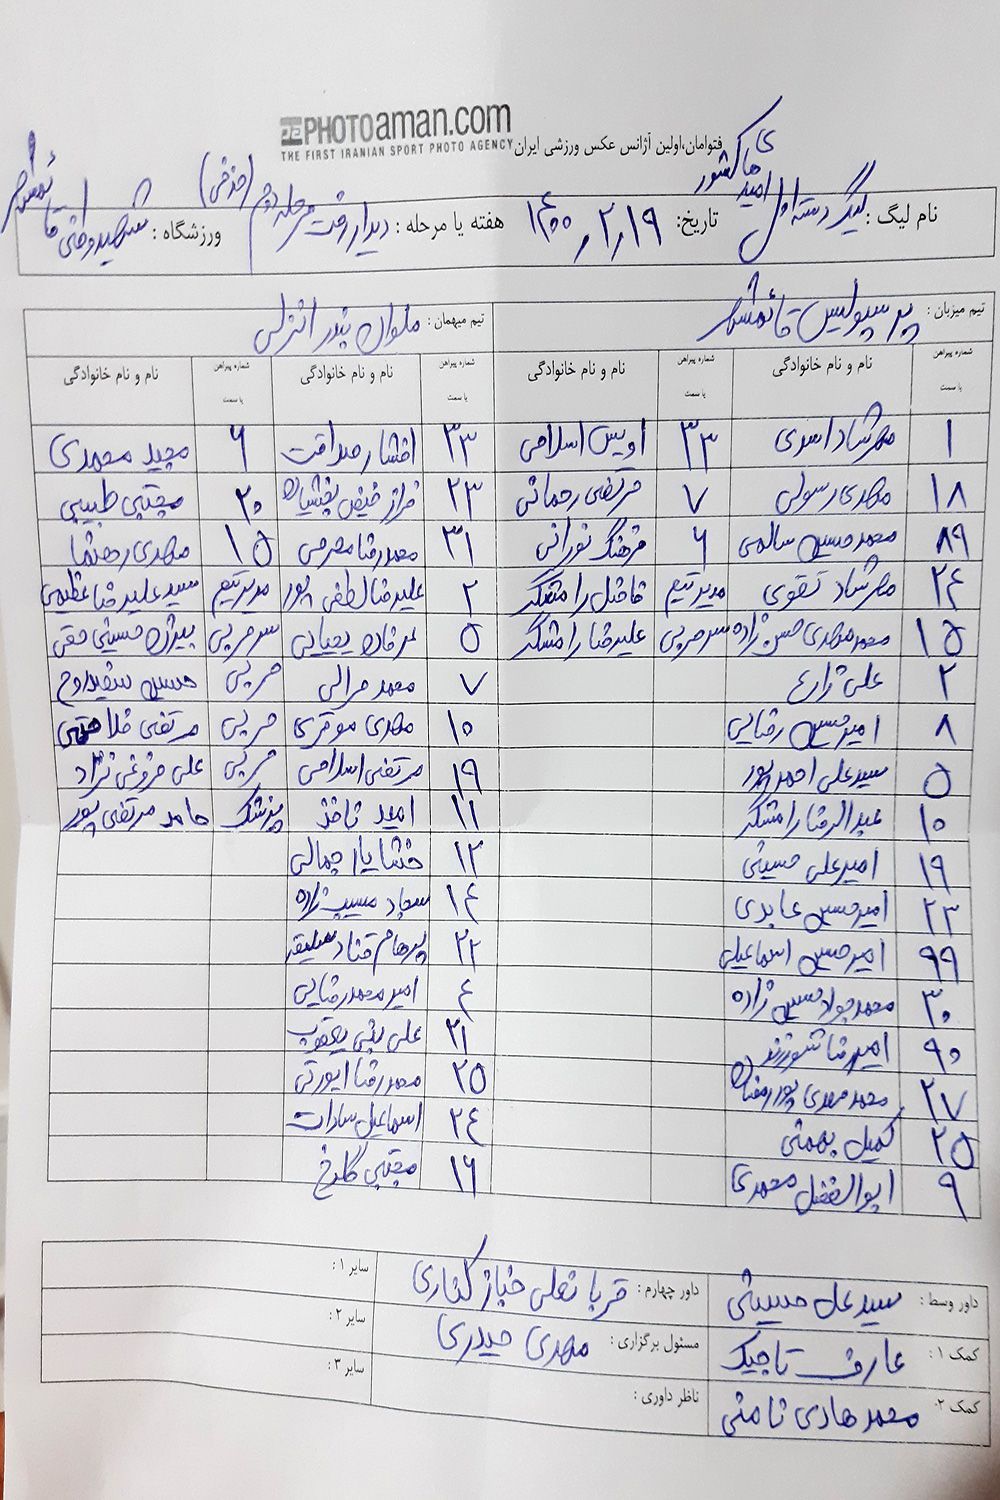 PHOTOaman.com
THE FIRST IRANIAN SPORT PHOTO AGENCY
فتوامان،اولین آژانس عکس ورزشی ایران
نام لیگ : لیگ دسته اول امیدهای کشور تاریخ: ۱۴۰۰٫۲٫۱۹ هفته یا مرحله : دیدار رفت مرحله دوم (حذفی) ورزشگاه : شهید وطنی قائمشهر
تیم میزبان : پرسپولیس قائمشهر تیم میهمان : ملوان بندر انزلی
شماره پیراهن یا سمت نام و نام خانوادگی شماره پیراهن یا سمت نام و نام خانوادگی شماره پیراهن یا سمت نام و نام خانوادگی شماره پیراهن یا سمت نام و نام خانوادگی
۱ مهرشاد اسدی ۳۳ اویس اسلامی ۳۳ افشار صداقت ۶ مجید محمدی
۱۸ مهدی رسولی ۷ مرتضی رحمانی ۲۳ فراز حنیفی بخشیان ۲۰ مجتبی طبیبی
۸۹ محمدحسین سالمی ۶ فرهنگ نورانی ۳۱ محمدرضا معرمی ۱۵ مهدی رهنما
۲۴ مهرشاد تقوی مدیر تیم قاخل رامشگر ۲ علیرضا لطفی پور مدیر تیم سید علیرضا عظیمی
۱۵ محمدمهدی حسن زاده سرمربی علیرضا رامشگر ۵ عرفان یحیایی سرمربی بیژن حسینی حقی
۲ علی زارع ۷ محمد مرالی مربی حسین سفیدروح
۸ امیرحسین رضایی ۱۰ مهدی موقری مربی مرتضی فلاحتی
۵ سید علی احمدپور ۱۹ مرتضی اسلامی مربی علی فروغی نژاد
۱۰ عبدالرضا رامشگر ۱۱ امید تاخذ پزشک حامد مرتضی پور
۱۹ امیرعلی حسینی ۱۲ خشایار جمالی
۲۳ امیرحسین عابدی ۱۴ سجاد مسیب زاده
۹۹ امیرحسین اسماعیلی ۲۲ پرهام قناد سلیقه
۳۰ محمدجواد حسین زاده ۴ امیرمحمد رضایی
۹۰ امیررضا شورزند ۲۱ علی بنی یعقوب
۲۷ محمدمهدی پوررمضان ۲۵ محمدرضا ایورتی
۲۵ کمیل بهمنی ۲۴ اسماعیل سادات
۹ ابوالفضل محمدی ۱۶ مجتبی گلرخ
داور وسط : سید علی حسینی داور چهارم : قربانعلی خباز کناری سایر ۱:
کمک ۱: عارف تاجیک مسئول برگزاری : مهدی حیدری سایر ۲:
کمک ۲: محمدهادی ثامنی ناظر داوری : سایر ۳: